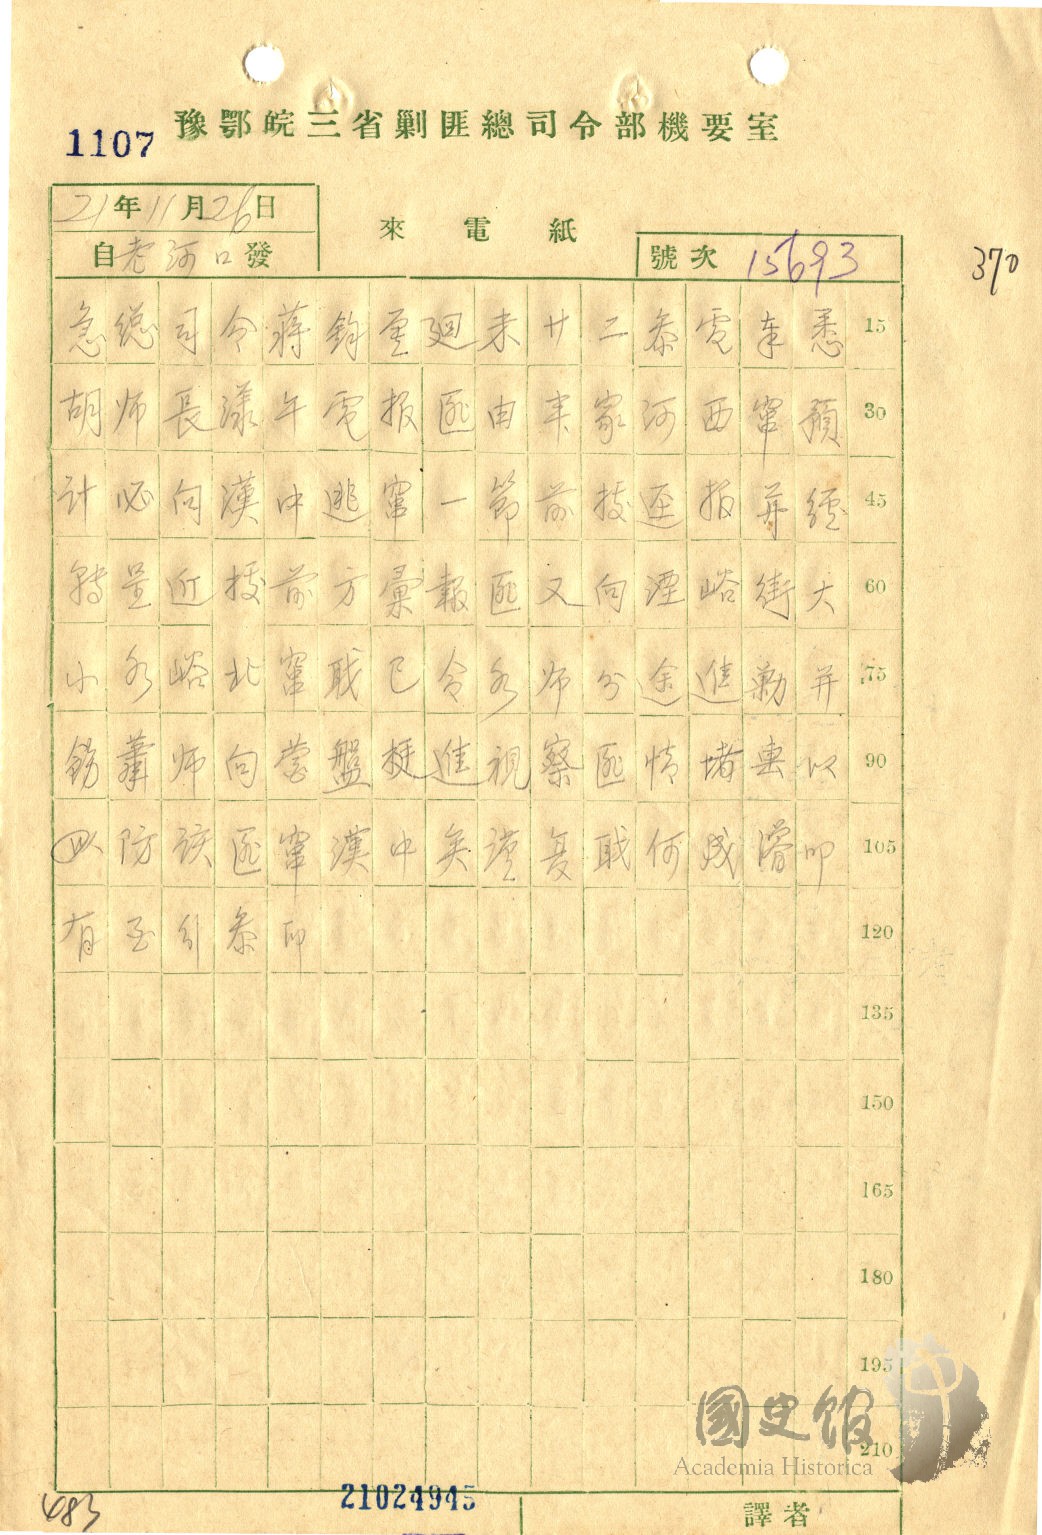 豫鄂皖三省剿匪總司令部機要室
1107
21年11月26日
自老河口發
來電紙
號次 15693
370
急總司令蔣鈞鑒迴未廿二叅電奉悉 15
胡师長漾午電报匪由來家河西竄預 30
计必向漢中逃竄一節前接逕报并經 45
轉呈近接前方彙報匪又向湮峪街大 60
小水峪北竄職已令各师分途進勦并 75
飭蕭师向營盤挺進視察匪情堵 以 90
防该匪竄漢中矣謹复職何成濬叩 105
有 引叅印 120
135
150
165
180
195
210
國史館
Academia Historica
483
21024945
譯者